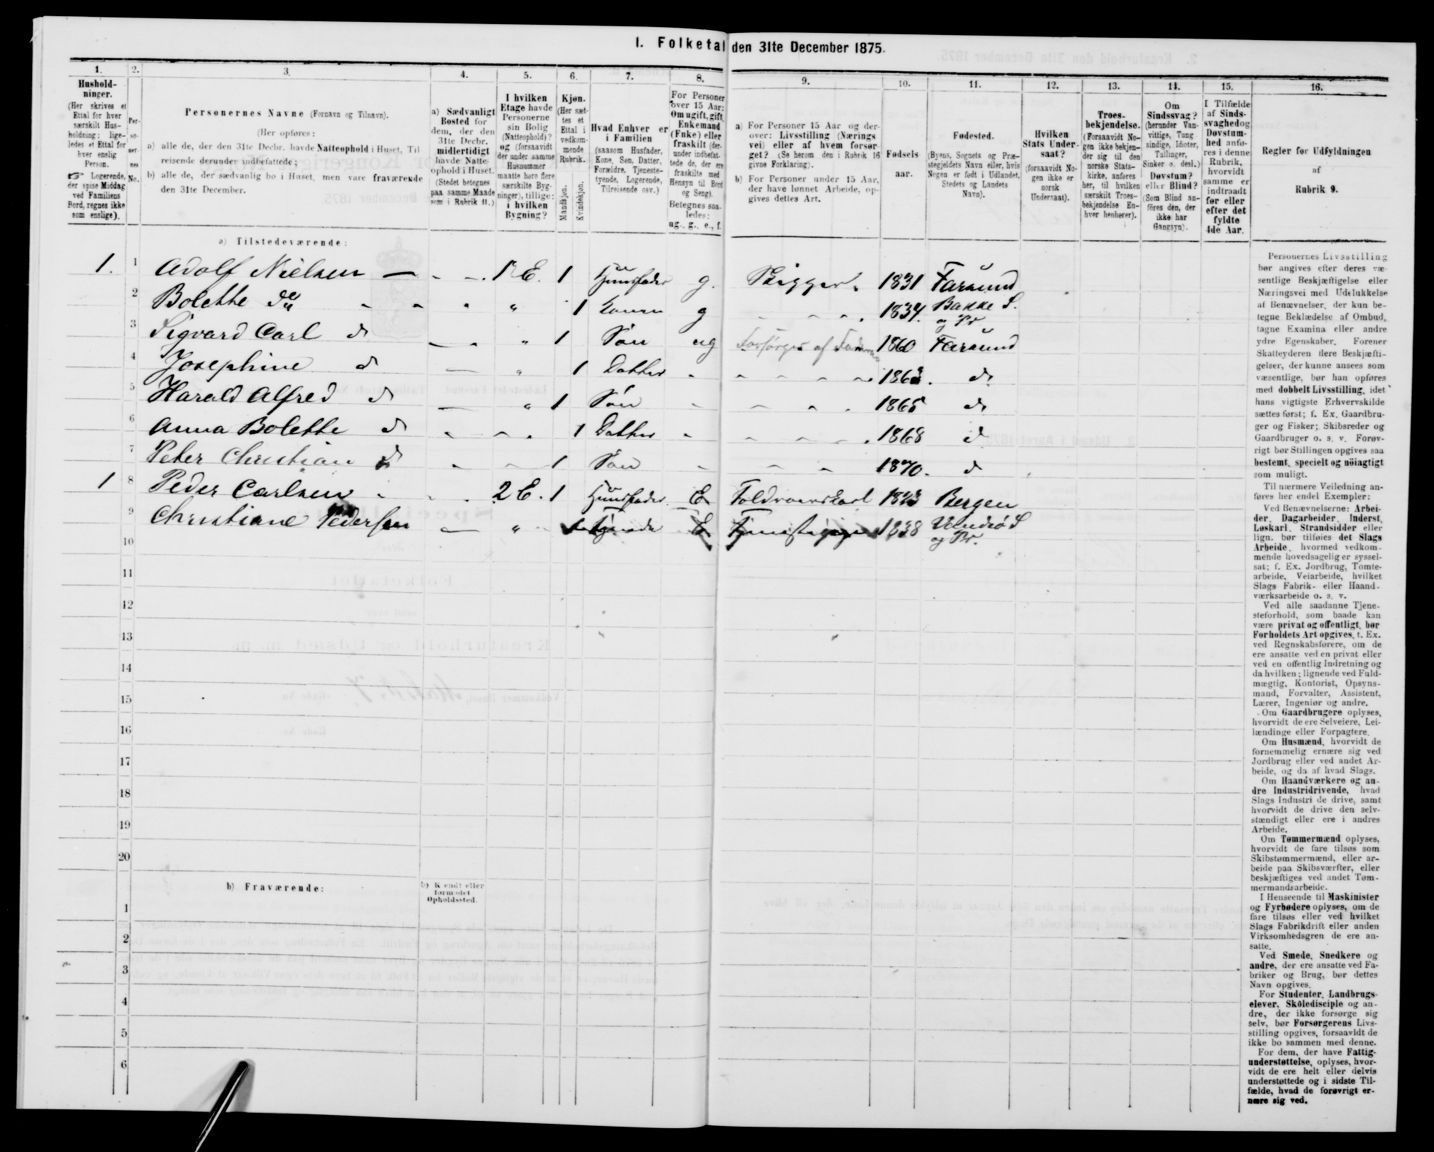 1. Folketal den 31te December 1875.
1. 2. 3. 4. 5. 6. 7. 8. 9. 10. 11. 12. 13. 14. 15. 16.
Hushold-
ninger.
(Her skrives et
Ettal for hver
særskilt Hus-
holdning; lige-
ledes et Ettal for
hver enslig
Person.
☞ Logerende,
der spise Middag
ved Familiens
Bord, regnes ikke
som enslige).
Per-
so-
ner-
nes
No.
Personernes Navne (Fornavn og Tilnavn).
(Her opføres:
a) alle de, der den 31te Decbr. havde Natteophold i Huset, Til-
reisende derunder indbefattede;
b) alle de, der sædvanlig bo i Huset, men vare fraværende
den 31te December.
a) Sædvanligt
Bosted for
dem, der den
31te Decbr.
midlertidigt
havde Natte-
ophold i Huset.
(Stedet betegnes
paa samme Maade
som i Rubrik 11.)
I hvilken
Etage havde
Personerne
sin Bolig
(Natteophold)?
og (forsaavidt
der under samme
Husnummer
maatte høre flere
særskilte Byg-
ninger), tillige:
i hvilken
Bygning?
Kjøn.
(Her sæt-
tes et
Ettal i
vedkom-
mende
Rubrik.
Mandkjøn.
Kvindekjøn.
Hvad Enhver er
i Familien
(saasom Husfader,
Kone, Søn, Datter,
Forældre, Tjeneste-
tyende, Logerende,
Tilreisende osv.)
For Personer
over 15 Aar:
Om ugift, gift,
Enkemand
(Enke) eller
fraskilt (der-
under indbefat-
tede de, der ere
fraskilte med
Hensyn til Bord
og Seng).
Betegnes saa-
ledes:
ug., g., e., f.
a) For Personer 15 Aar og der-
over: Livsstilling (Nærings-
vei) eller af hvem forsør-
get? (Se herom den i Rubrik 16
givne Forklaring).
b) For Personer under 15 Aar,
der have lønnet Arbeide, op-
gives dettes Art.
Fødsels-
aar.
Fødested.
(Byens, Sognets og Præ-
stegjeldets Navn eller, hvis
Nogen er født i Udlandet,
Stedets og Landets
Navn).
Hvilken
Stats Under-
saat?
(forsaavidt No-
gen ikke er
norsk
Undersaat).
Troes-
bekjendelse.
(Forsaavidt No-
gen ikke bekjen-
der sig til den
norske Stats-
kirke, anføres
her, til hvilken
særskilt Troes-
bekjendelse En-
hver henhører).
Om
Sindssvag?
(herunder Van-
vittige, Tung-
sindige, Idioter,
Tullinger,
Sinker o. desl.)
Døvstum?
eller Blind?
(Som Blind an-
føres den, der
ikke har
Gangsyn).
I Tilfælde
af Sinds-
svaghed og
Døvstum-
hed anfø-
res i denne
Rubrik,
hvorvidt
samme er
indtraadt
før eller
efter det
fyldte
4de Aar.
Regler for Udfyldningen
af
Rubrik 9.
a) Tilstedeværende:
1. Adolf Nielsen 1 E. 1 Huusfader g. Skipper 1831 Farsund
2 Bolette do 1 Konen g 1834 Bakke S. og Pr
3 Sigvard Carl d 1 Søn ug Forsørges af Faderen 1860 Farsund
4 Josephine d 1 Datter 1863. d
5 Harald Alfred d 1 Søn 1865 d
6 Anna Bolette d 1 Datter 1868 d
7 Peter Christian d 1 Søn 1870. d
1 8 Peder Carlsen 2 E. 1 Huusfader E 1823 Bergen
9 Christiane Pedersen 1838 S og Pr.
10
11
12
13
14
15
16
17
18
19
20
b) Fraværende:
b) Kendt eller
formodet
Opholdssted.
1
2
3
4
5
6
Personernes Livsstilling
bør angives efter deres væ-
sentlige Beskjæftigelse eller
Næringsvei med Udelukkelse
af Benævnelser, der kun be-
tegne Beklædelse af Ombud,
tagne Examina eller andre
ydre Egenskaber. Forener
Skatteyderen flere Beskjæfti-
gelser, der kunne ansees som
væsentlige, bør han opføres
med dobbelt Livsstilling, idet
hans vigtigste Erhvervskilde
sættes først; f. Ex. Gaardbru-
ger og Fisker; Skibsreder og
Gaardbruger o. s. v. Forøv-
rigt bør Stillingen opgives saa
bestemt, specielt og nøiagtigt
som muligt.
Til nærmere Veiledning an-
føres her endel Exempler:
Ved Benævnelserne: Arbei-
der, Dagarbeider, Inderst,
Løskarl, Strandsidder eller
lign. bør tilføies det Slags
Arbeide, hvormed vedkom-
mende hovedsagelig er syssel-
sat; f. Ex. Jordbrug, Tomte-
arbeide, Veiarbeide, hvilket
Slags Fabrik- eller Haand-
værksarbeide o. s. v.
Ved alle saadanne Tjene-
steforhold, som baade kan
være privat og offentligt, bør
Forholdets Art opgives, f. Ex.
ved Regnskabsførere, om de
ere ansatte ved en privat eller
ved en offentlig Indretning og
da hvilken; lignende ved Fuld-
mægtig, Kontorist, Opsyns-
mand, Forvalter, Assistent,
Lærer, Ingeniør og andre.
Om Gaardbrugere oplyses,
hvorvidt de ere Selveiere, Lei-
lændinge eller Forpagtere.
Om Husmænd, hvorvidt de
fornemmelig ernære sig ved
Jordbrug eller ved andet Ar-
beide, og da af hvad Slags.
Om Haandværkere og an-
dre Industridrivende, hvad
Slags Industri de drive, samt
hvorvidt de drive den selv-
stændigt eller ere i andres
Arbeide.
Om Tømmermænd oplyses,
hvorvidt de fare tilsøs som
Skibstømmermænd, eller ar-
beide paa Skibsværfter, eller
beskjæftiges ved andet Tøm-
mermandsarbeide.
I Henseende til Maskinister
og Fyrbødere oplyses, om de
fare tilsøs eller ved hvilket
Slags Fabrikdrift eller anden
Virksomhedsgren de ere an-
satte.
Ved Smede, Snedkere og
andre, der ere ansatte ved Fa-
briker og Brug, bør dettes
Navn opgives.
For Studenter, Landbrugs-
elever, Skoledisciple og an-
dre, der ikke forsørge sig
selv, bør Forsørgerens Livs-
stilling opgives, forsaavidt de
ikke bo sammen med denne.
For dem, der have Fattig-
understøttelse, oplyses, hvor-
vidt de ere helt eller delvis
understøttede og i sidste Til-
fælde, hvad de forøvrigt er-
nære sig ved.